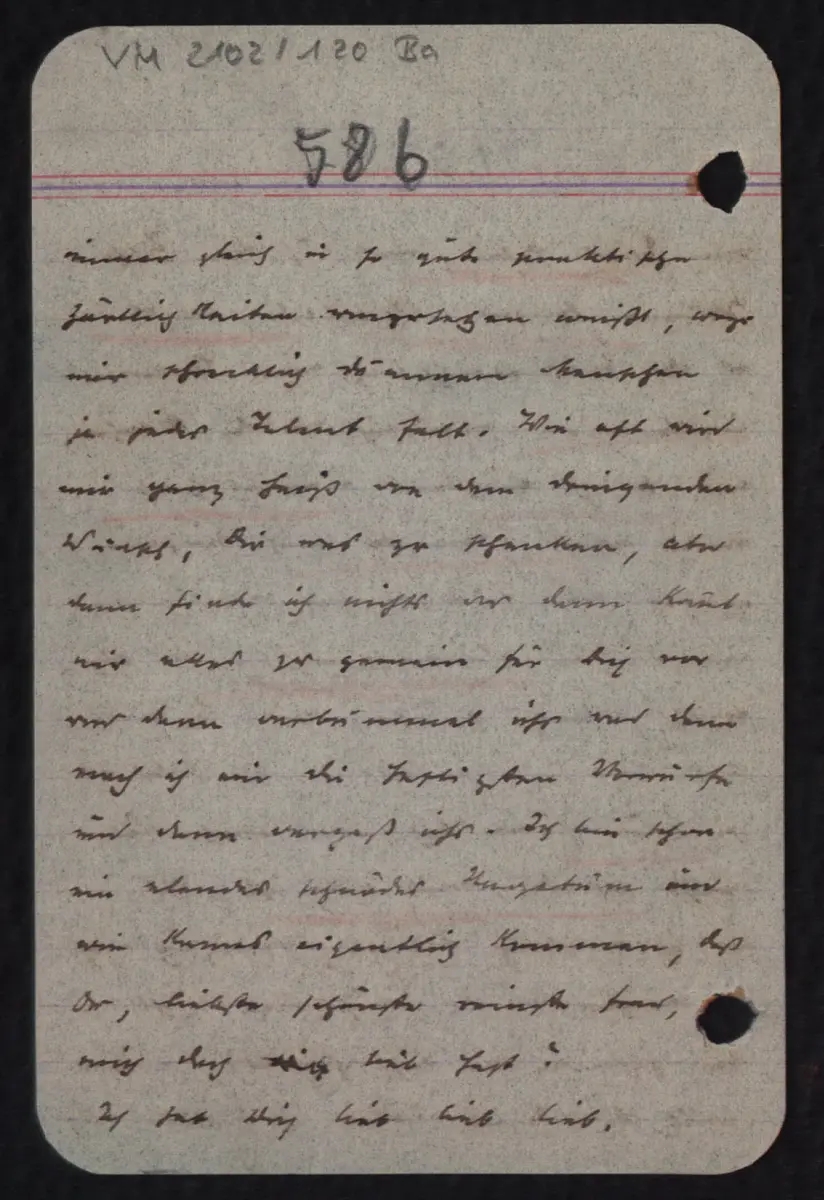 VM 2102/120 Ba
586
immer gleich in so gute praktische
Zärtlichkeiten umzusetzen weißt, wozu
mir schrecklich dummem Menschen
ja jedes Talent fehlt. Wie oft wird
mir ganz heiß von dem dringenden
Wunsch, Dir was zu schenken, aber
dann finde ich nichts oder dann kommt
mir alles zu gemein für Dich vor
und dann verbummel ichs und dann
mach ich mir die heftigsten Vorwürfe
und dann vergeß ichs. Ich bin schon
ein elendes schnödes Ungetüm und
wie kann es eigentlich kommen, daß
Du, liebste schönste reinste Frau,
mich doch lieb hast?
Ich hab Dich lieb lieb lieb.